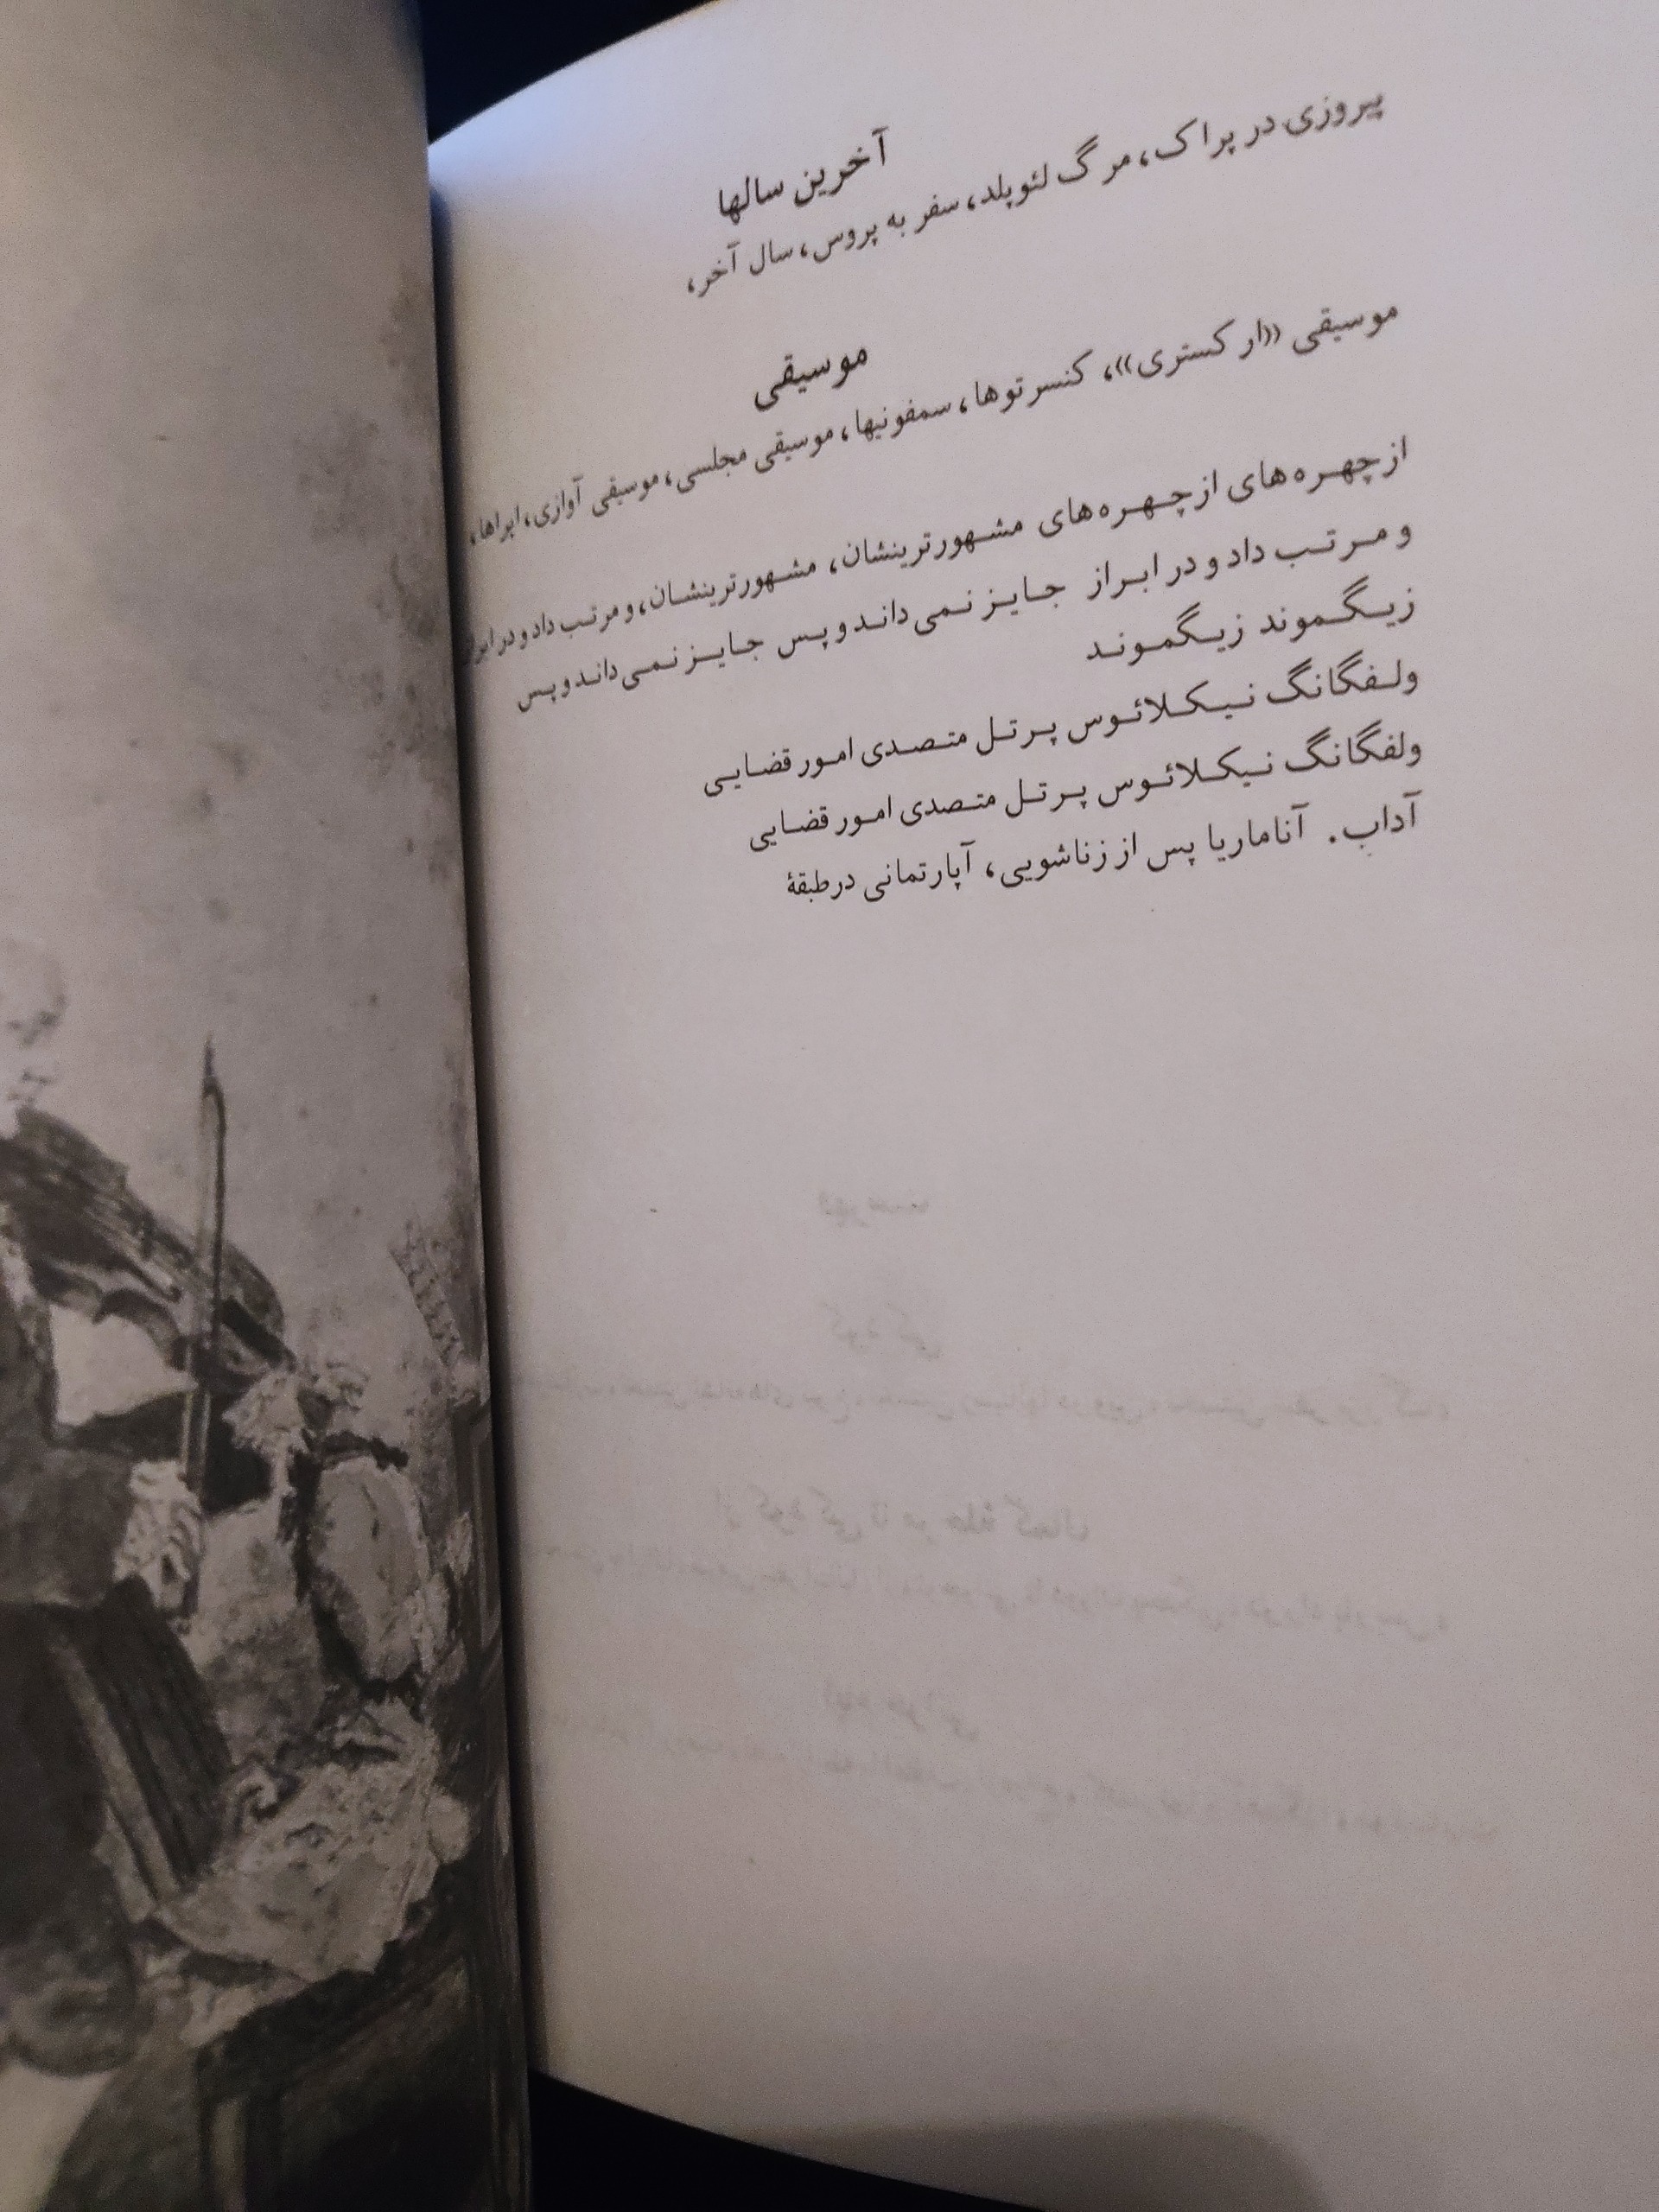 آخرین سالها
پیروزی در پراک، مرگ لئوپلد، سفر به پروس، سال آخر،
موسیقی
موسیقی «ارکستری»، کنسرتوها، سمفونیها، موسیقی مجلسی، موسیقی آوازی، اپراها،
از چهره‌های از چهره‌های مشهورترینشان، مشهورترینشان، و مرتب داد و در ابراز
و مرتب داد و در ابراز جایز نمی‌داند و پس جایز نمی‌داند و پس
زیگموند زیگموند
ولفگانگ نیکلائوس پرتل متصدی امور قضایی
ولفگانگ نیکلائوس پرتل متصدی امور قضایی
آداب. آناماریا پس از زناشویی، آپارتمانی در طبقهٔ